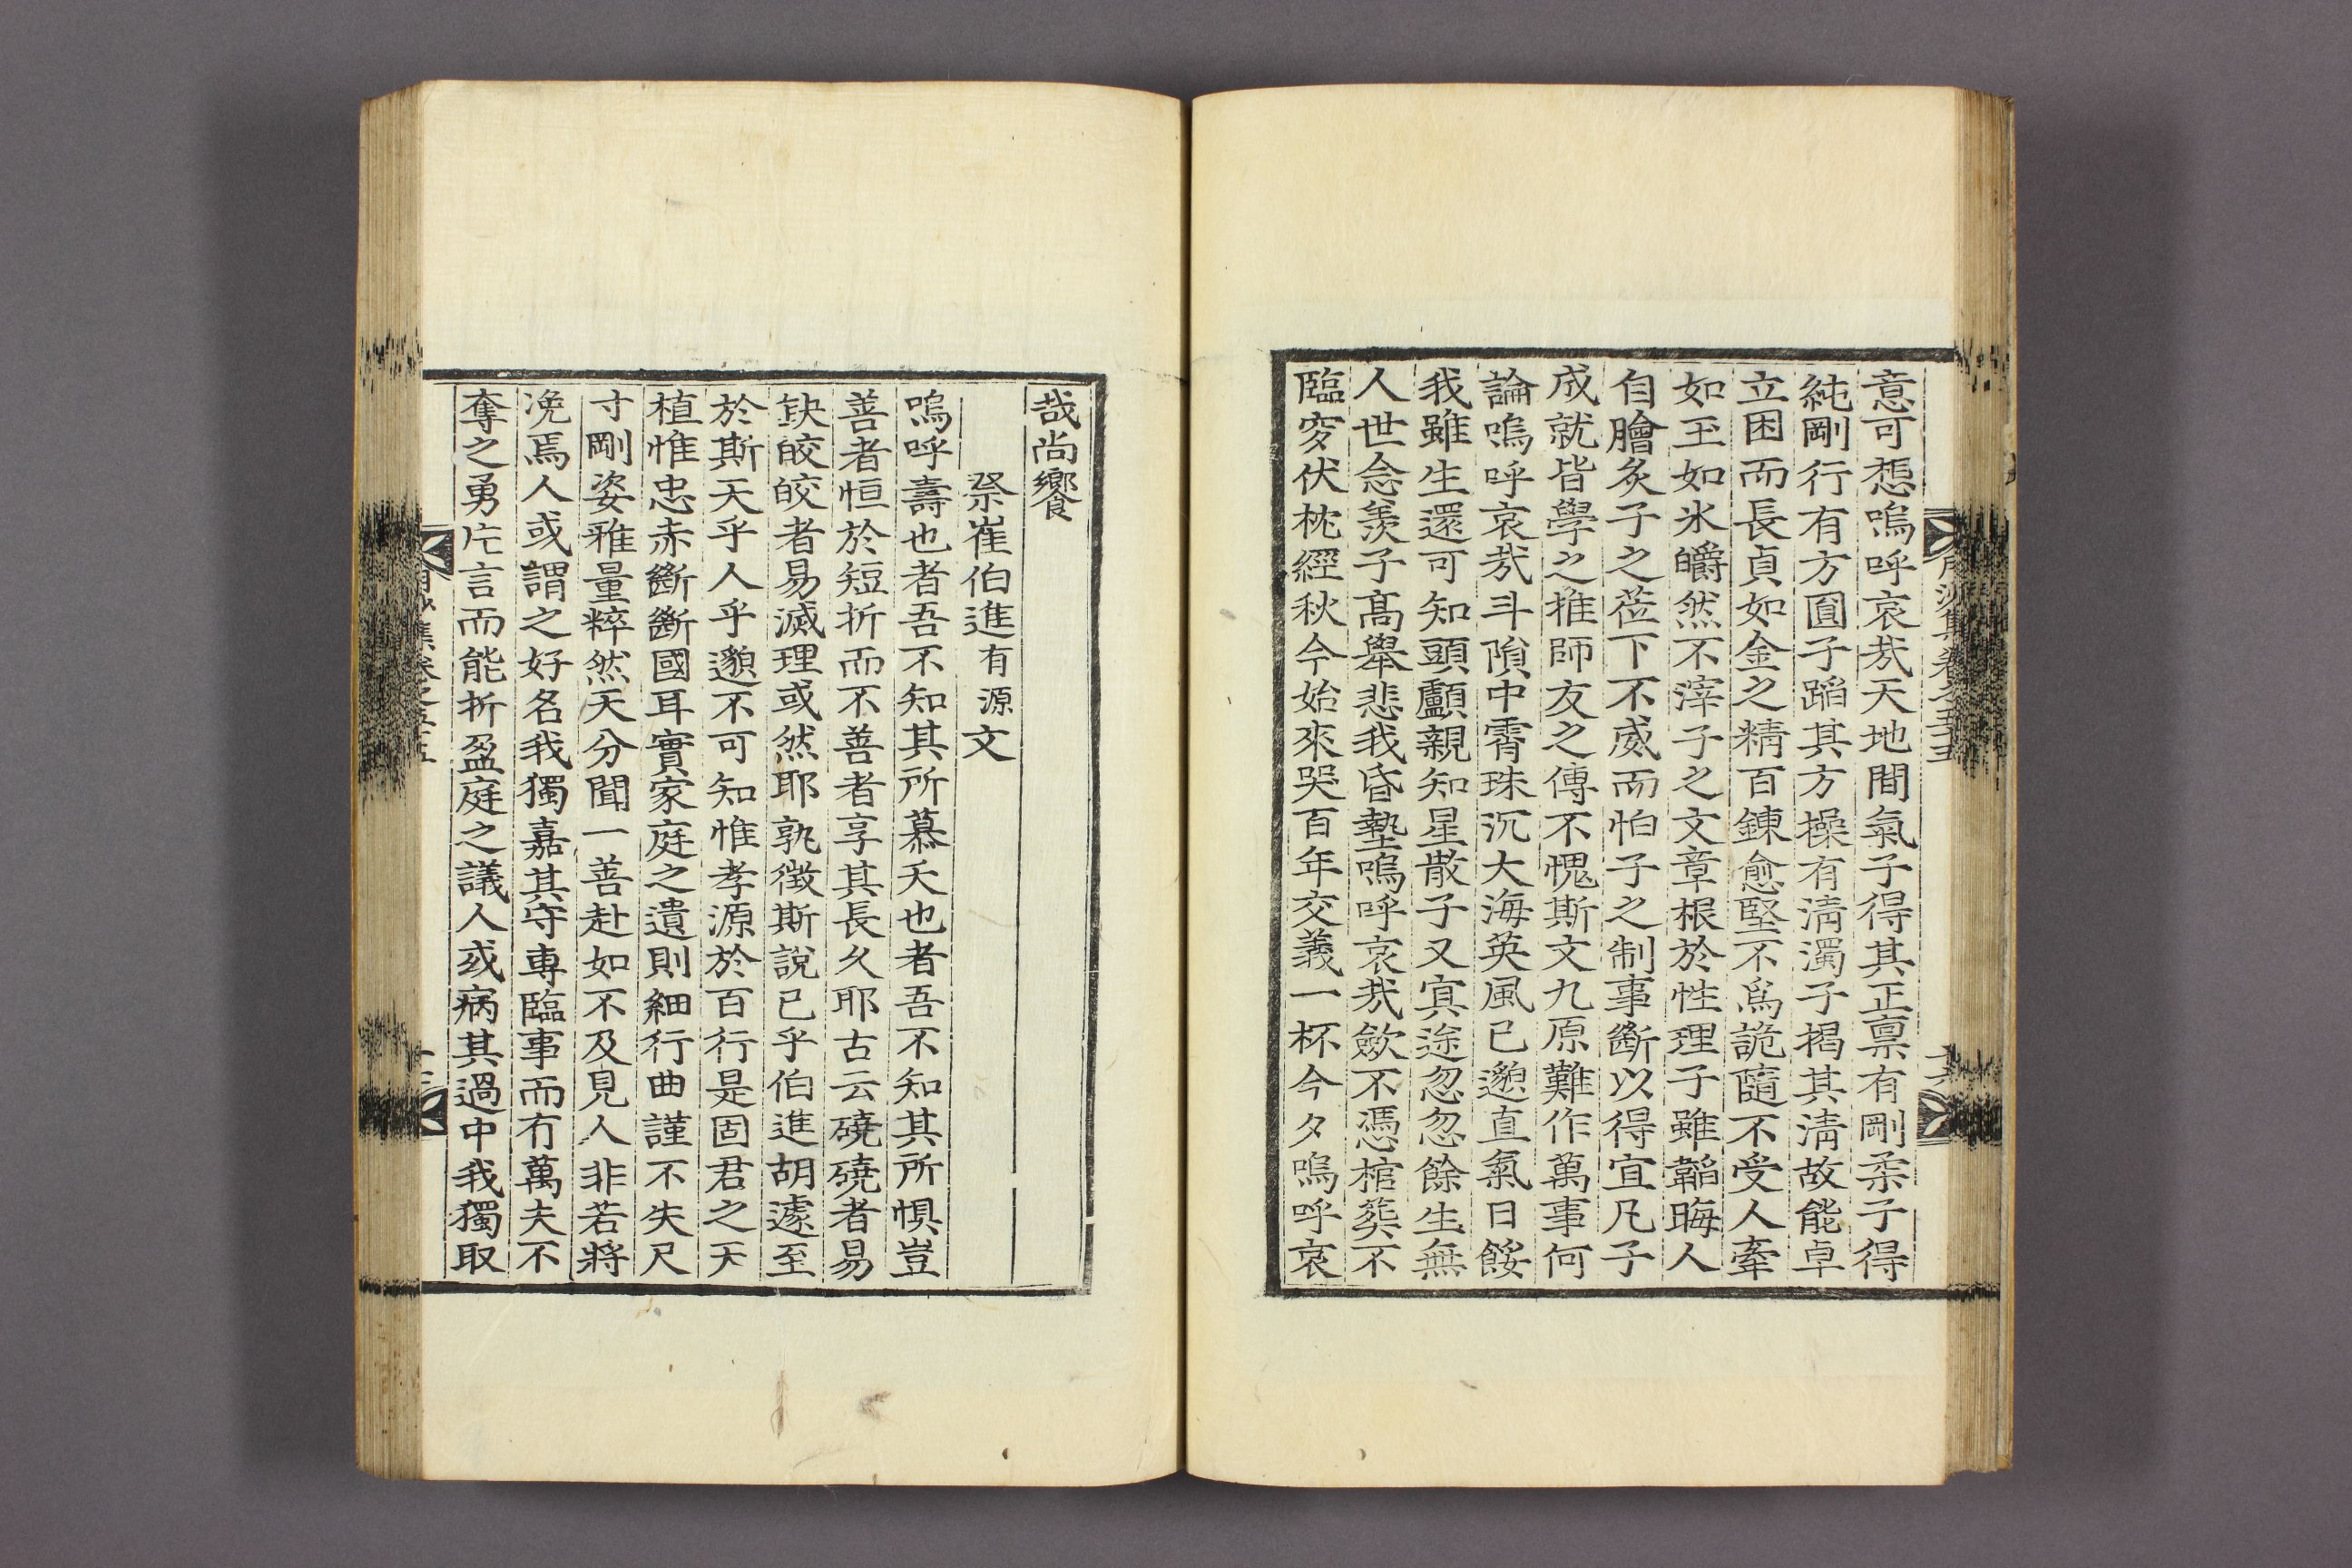 意可想嗚呼哀哉天地間氣子得其正禀有剛柔子得
純剛行有方圓子蹈其方操有淸濁子揭其淸故能卓
立困而長貞如金之精百鍊愈堅不爲詭隨不受人牽
如玉如氷皭然不滓子之文章根於性理子雖韜晦人
自膾炙子之莅下不威而怕子之制事斷以得宜凡子
成就皆學之推師友之傳不愧斯文九原難作萬事何
論嗚呼哀哉斗隕中霄珠沉大海英風已邈直氣日餒
我雖生還可知頭顱親知星散子又寘途忽忽餘生無
人世念羨子髙擧悲我昏墊嗚呼哀哉歛不憑棺葬不
臨穸伏枕經秋今始來哭百年交義一杯今夕嗚呼哀
哉尙饗
祭崔伯進有源文
嗚呼壽也者吾不知其所慕夭也者吾不知其所惧豈
善者恒於短折而不善者享其長久耶古云磽磽者易
缺皎皎者易滅理或然耶孰徴斯說已乎伯進胡遽至
於斯天乎人乎邈不可知惟孝源於百行是固君之天
植惟忠赤斷斷國耳實家庭之遺則細行曲謹不失尺
寸剛姿雅量粹然天分聞一善赴如不及見人非若將
浼焉人或謂之好名我獨嘉其守專臨事而有萬夫不
奪之勇片言而能折盈庭之議人或病其過中我獨取